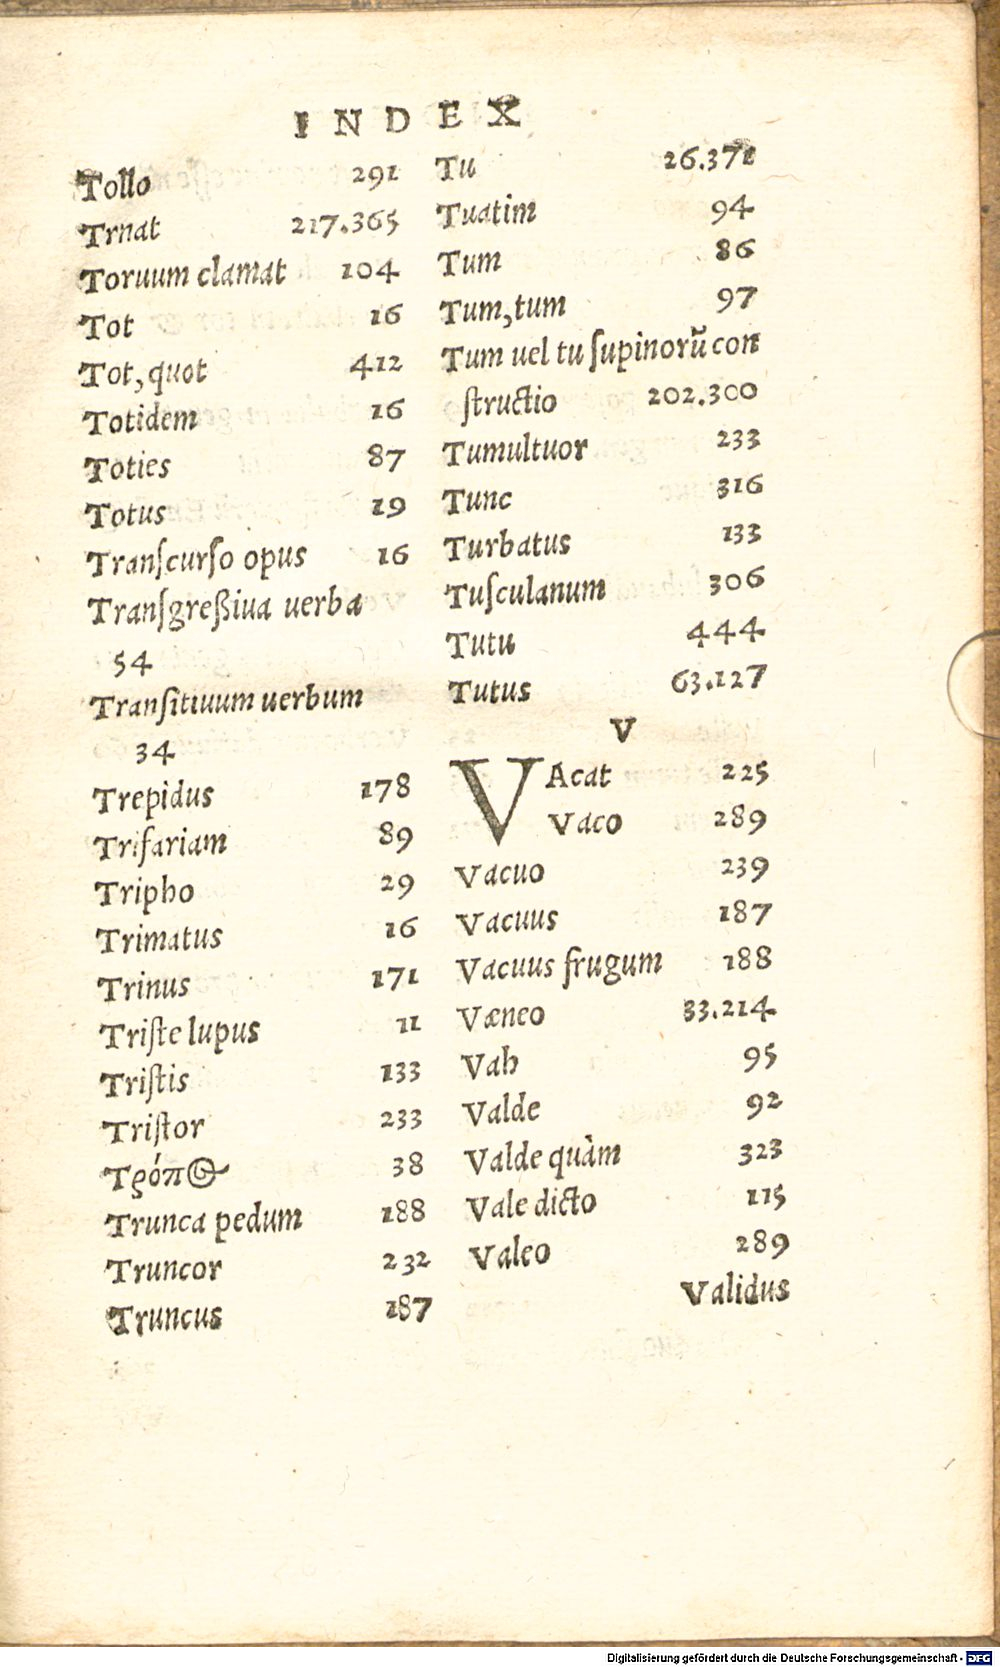 INDEX
Tollo 291
Trnat 217.365
Toruum clamat 104
Tot 16
Tot, quot 412
Totidem 16
Toties 87
Totus 19
Tranſcurſo opus 16
Tranſgreßiua uerba
54
Tranſitiuum uerbum
34
Trepidus 178
Trifariam 89
Tripho 29
Trimatus 16
Trinus 171
Triſte lupus 11
Triſtis 133
Triſtor 233
Τρόπος 38
Trunca pedum 188
Truncor 232
Truncus 187
Tu 26.371
Tuatim 94
Tum 86
Tum, tum 97
Tum uel tu ſupinorũ con
ſtructio 202.300
Tumultuor 233
Tunc 316
Turbatus 133
Tuſculanum 306
Tutu 444
Tutus 63.127
V
VAcat 225
Vaco 289
Vacuo 239
Vacuus 187
Vacuus frugum 188
Væneo 33.214
Vah 95
Valde 92
Valde quàm 323
Vale dicto 115
Valeo 289
Validus
Digitalisierung gefördert durch die Deutsche Forschungsgemeinschaft - DFG